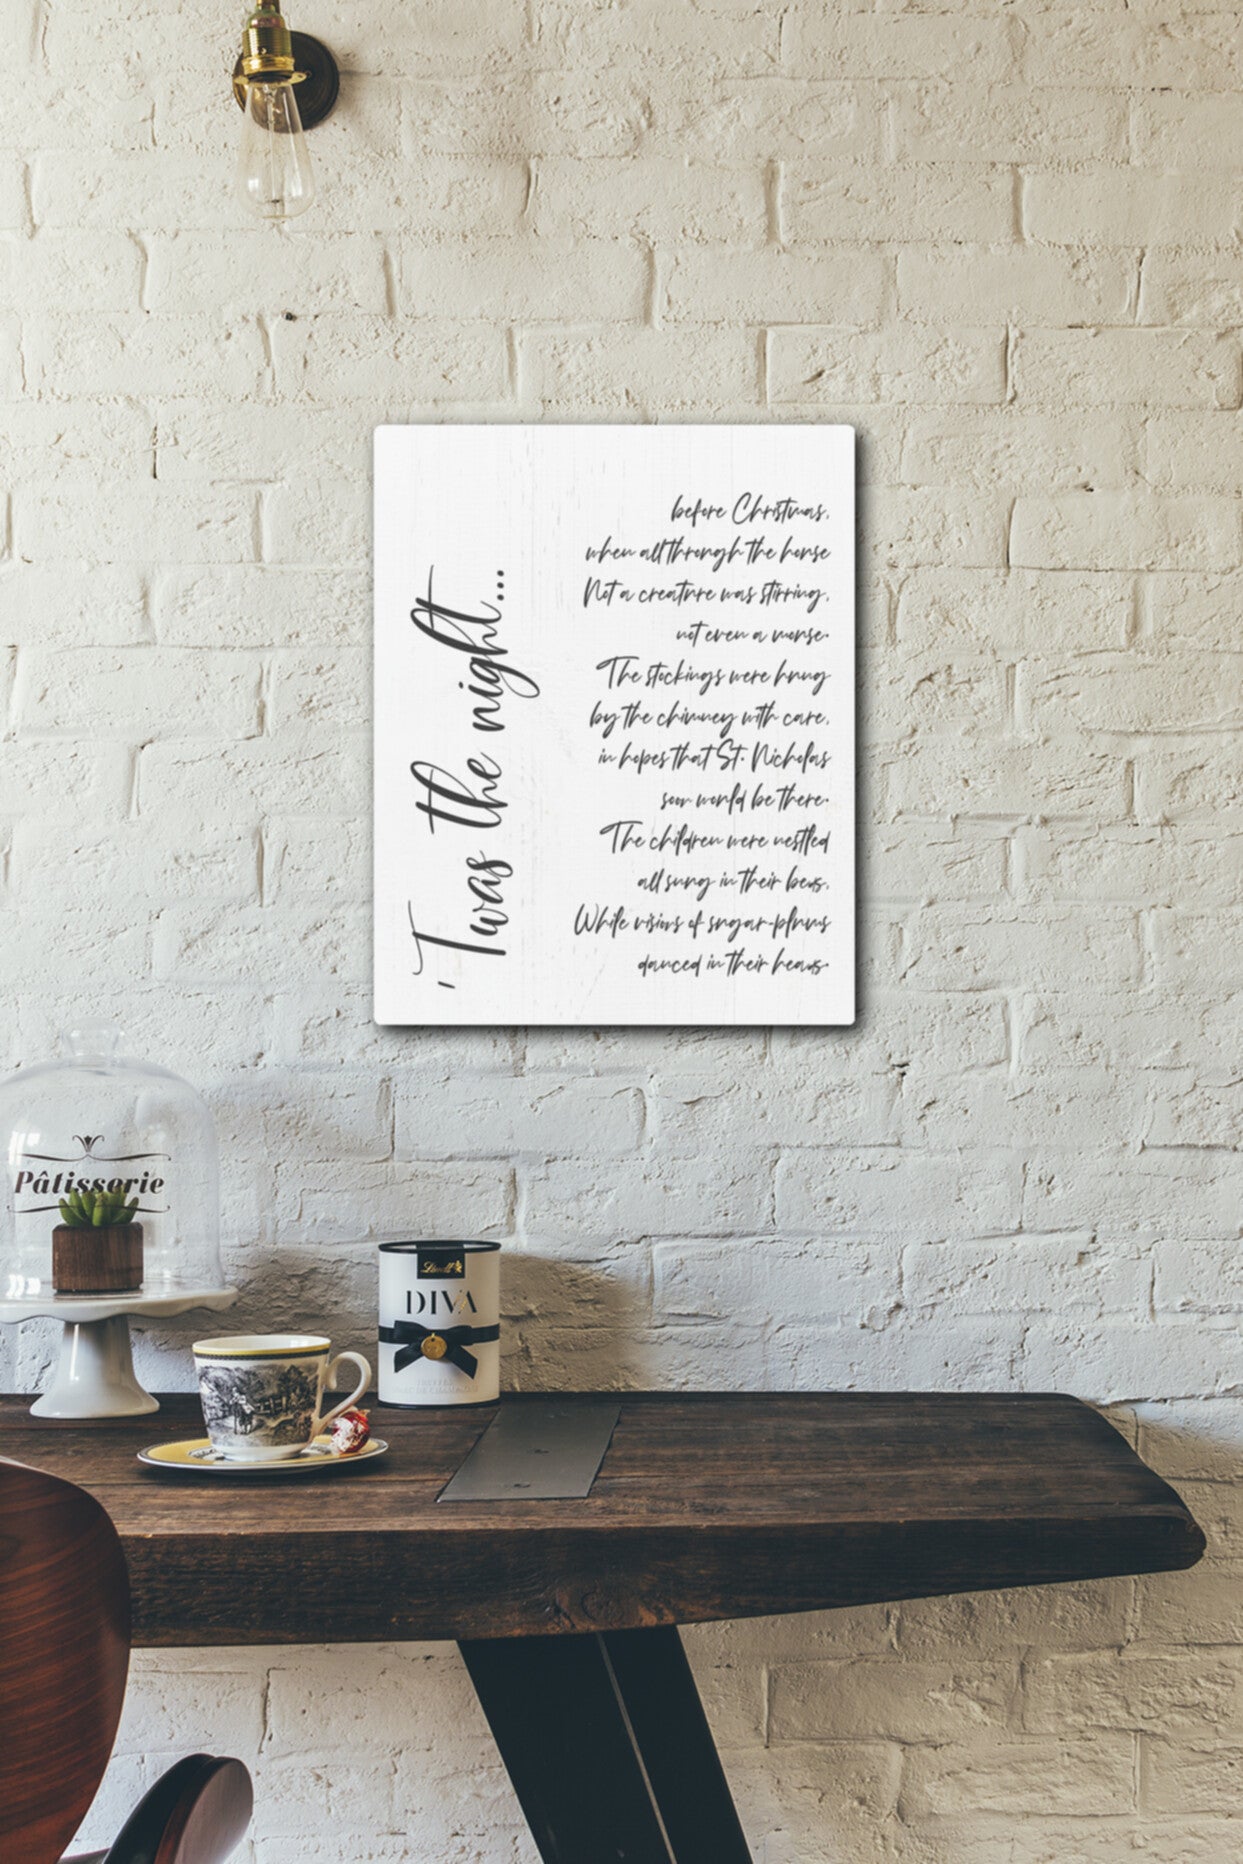 'Twas the night...
before Christmas,
when all through the house
Not a creature was stirring,
not even a mouse.
The stockings were hung
by the chimney with care,
in hopes that St. Nicholas
soon would be there.
The children were nestled
all snug in their beds,
While visions of sugar-plums
danced in their heads.
Pâtisserie
Lindt
DIVA